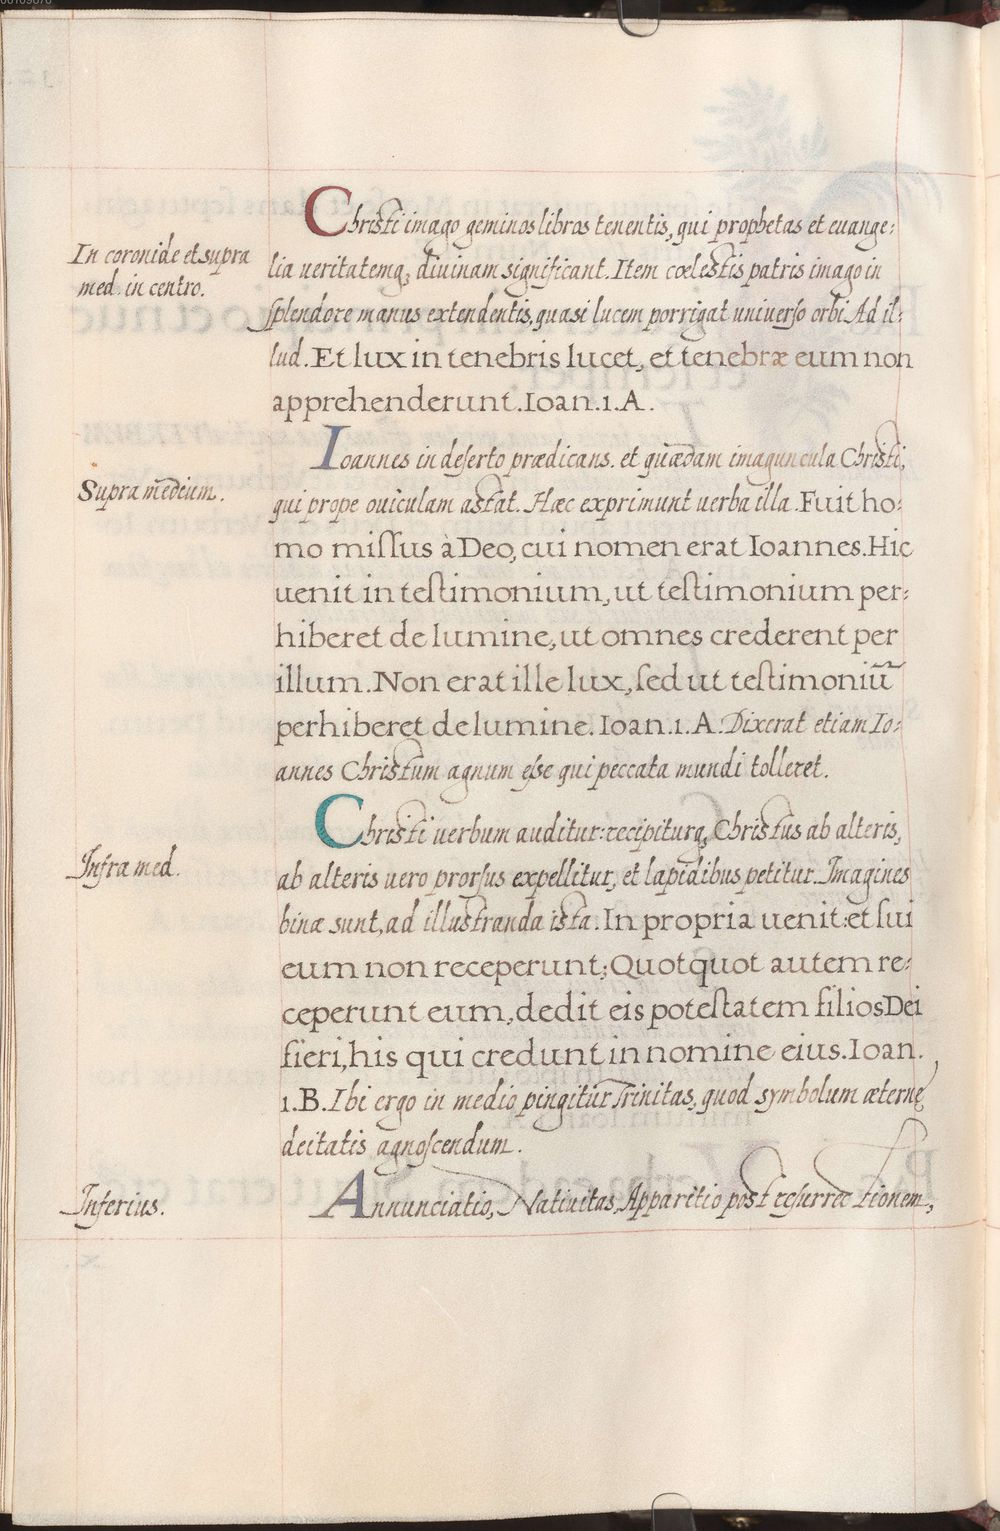 Christi imago geminos libros tenentis, qui prophetas et euange:
In coronide et supra
med. in centro.
lia ueritatemq; diuinam significant. Item cœlestis patris imago in
splendore manus extendentis, quasi lucem porrigat uniuerso orbi. Ad il:
lud. Et lux in tenebris lucet, et tenebræ eum non
apprehenderunt. Ioan. 1. A.
Ioannes in deserto prædicans. et quædam imaguncula Christi,
Supra medium.
qui prope ouiculam astat. Hæc exprimunt uerba illa. Fuit ho:
mo missus à Deo, cui nomen erat Ioannes. Hic
uenit in testimonium, ut testimonium per:
hiberet de lumine, ut omnes crederent per
illum. Non erat ille lux, sed ut testimoniū
perhiberet de lumine. Ioan. 1. A. Dixerat etiam Io:
annes Christum agnum esse qui peccata mundi tolleret.
Christi uerbum auditur: recipiturq; Christus ab alteris,
Infra med.
ab alteris uero prorsus expellitur, et lapidibus petitur. Imagines
binæ sunt, ad illustranda ista. In propria uenit: et sui
eum non receperunt; Quotquot autem re:
ceperunt eum, dedit eis potestatem filios Dei
fieri, his qui credunt in nomine eius. Ioan.
1. B. Ibi ergo in medio pingitur Trinitas, quod symbolum æternę
deitatis agnoscendum.
Inferius.
Annunciatio, Natiuitas, Apparitio post resurrectionem,